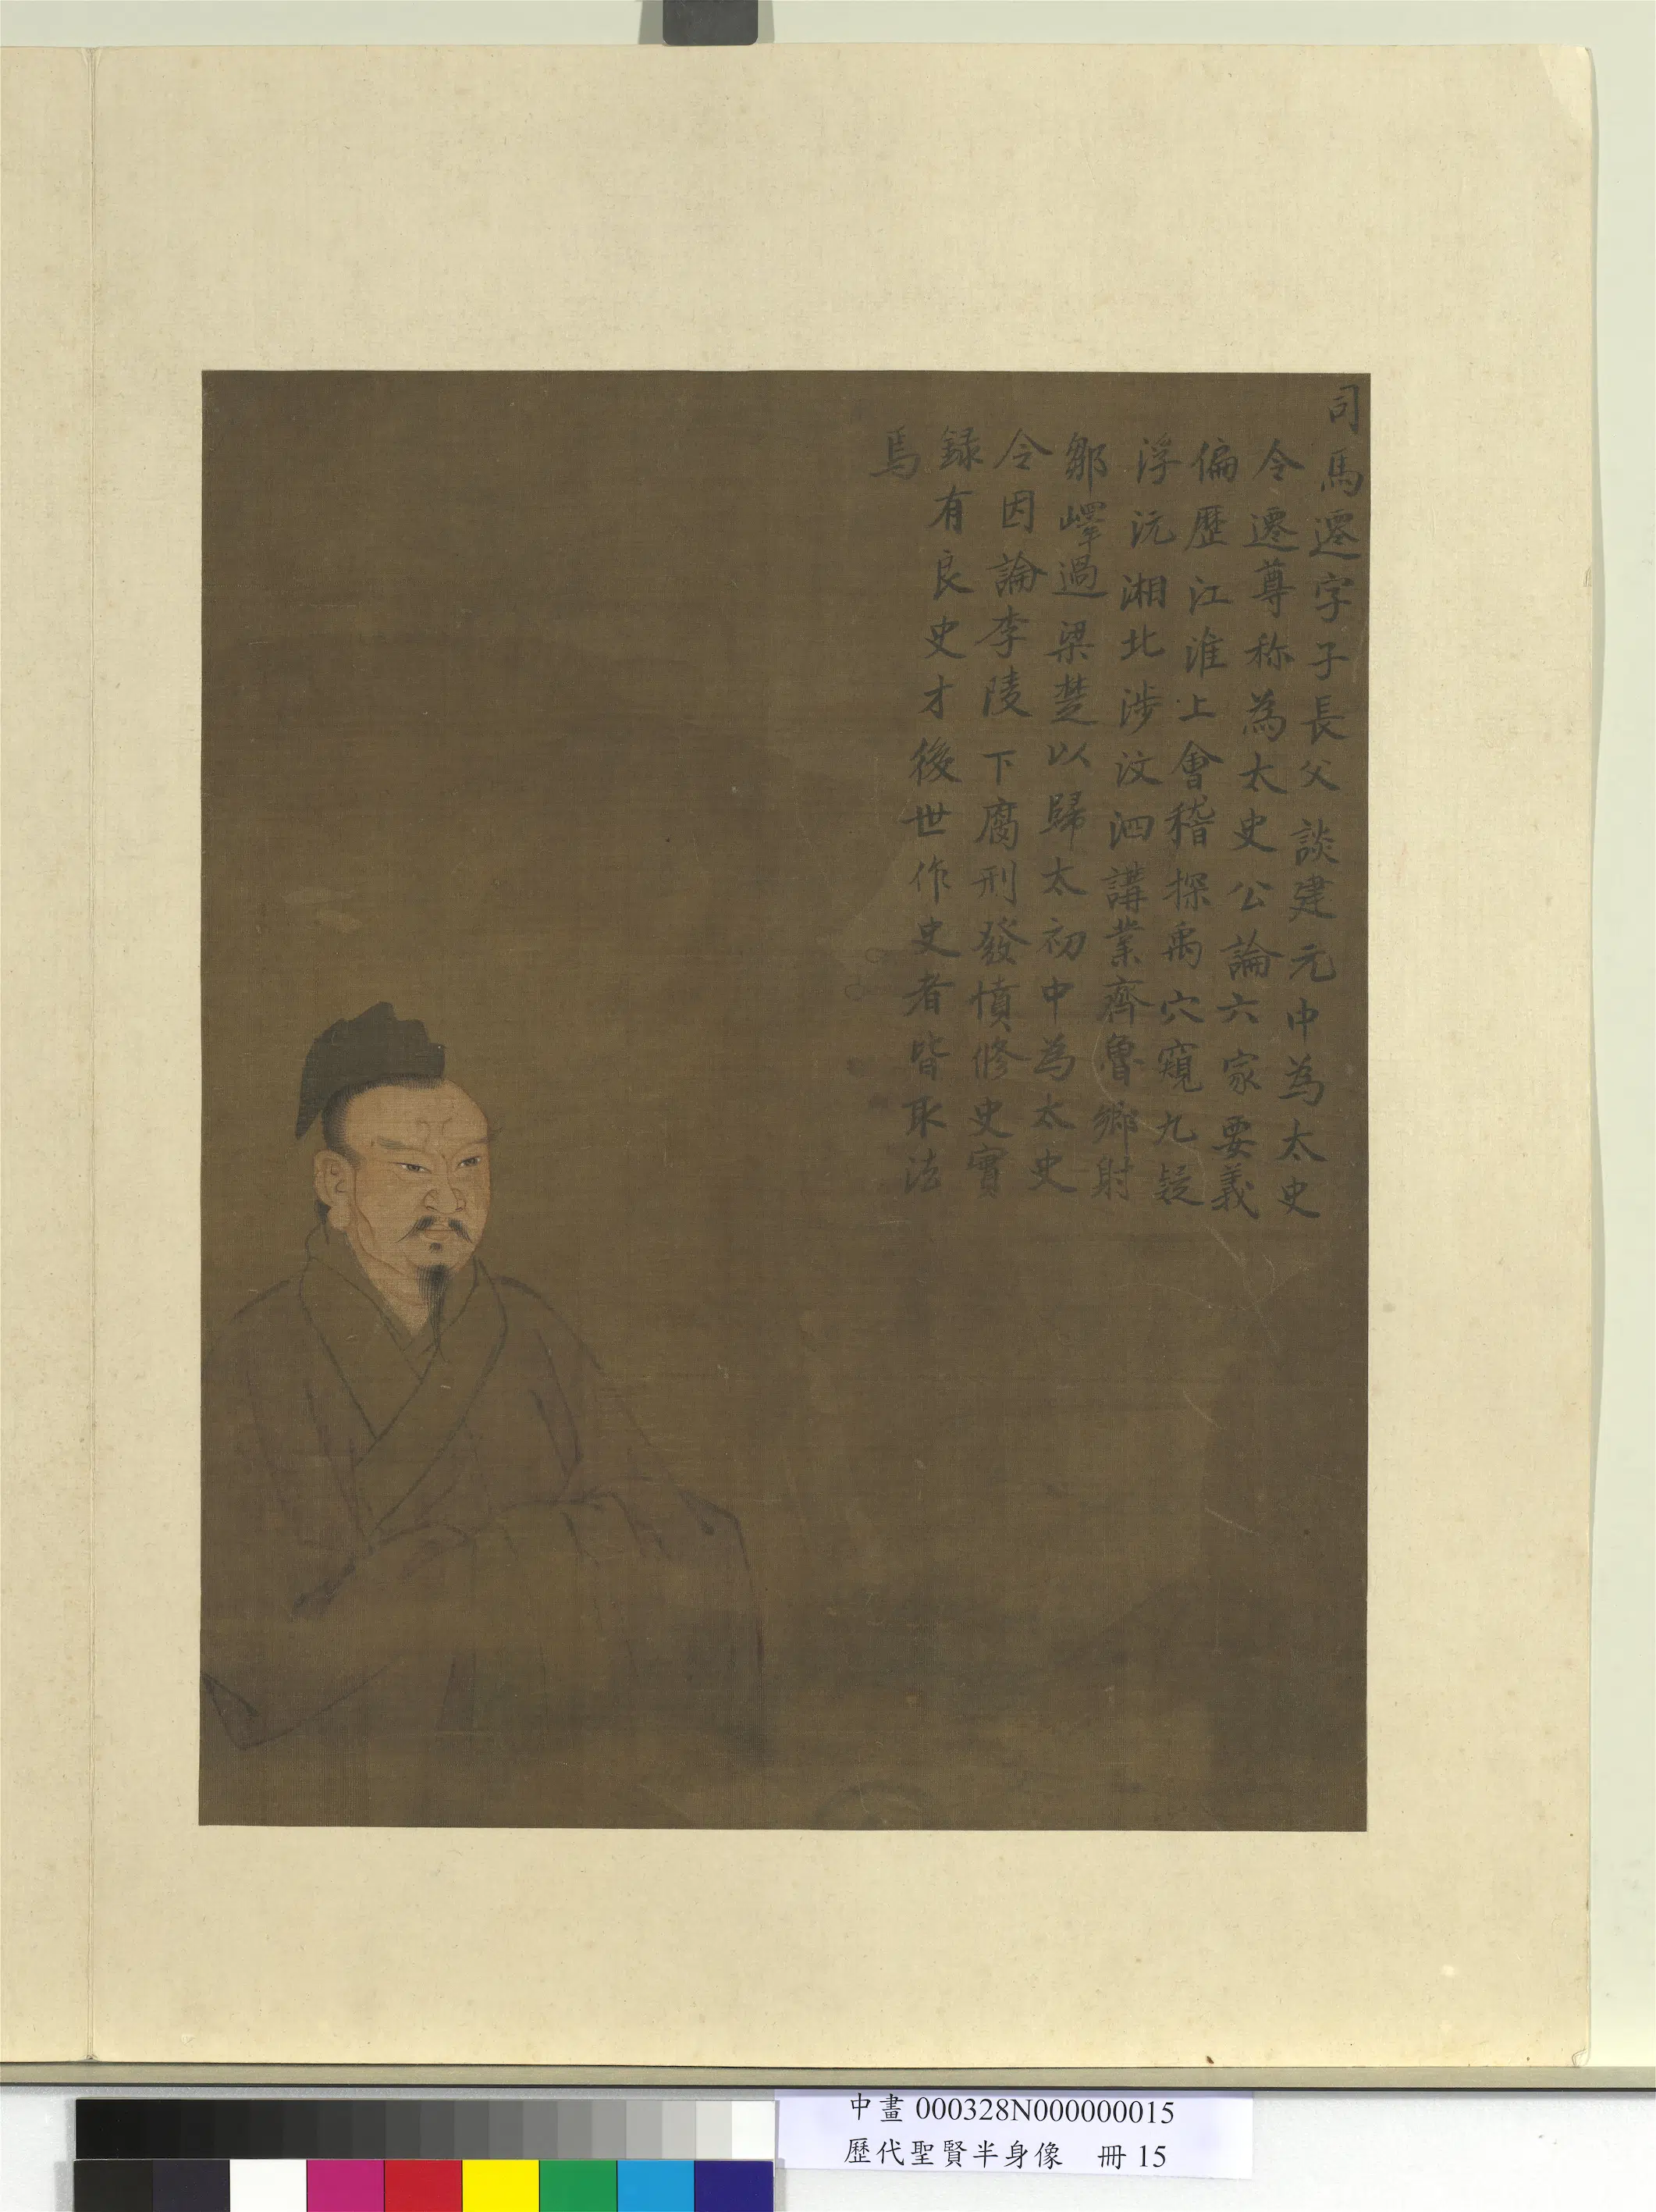 司馬遷字子長父談建元中為太史
令遷尊称為太史公論六家要義
偏歷江淮上會稽探禹穴窺九疑
浮沅湘北涉汶泗講業齊魯鄉射
鄒嶧過梁楚以歸太初中為太史
令因論李陵下腐刑發憤修史實
録有良史才後世作史者皆取法
焉
中畫 000328N000000015
歷代聖賢半身像 冊 15